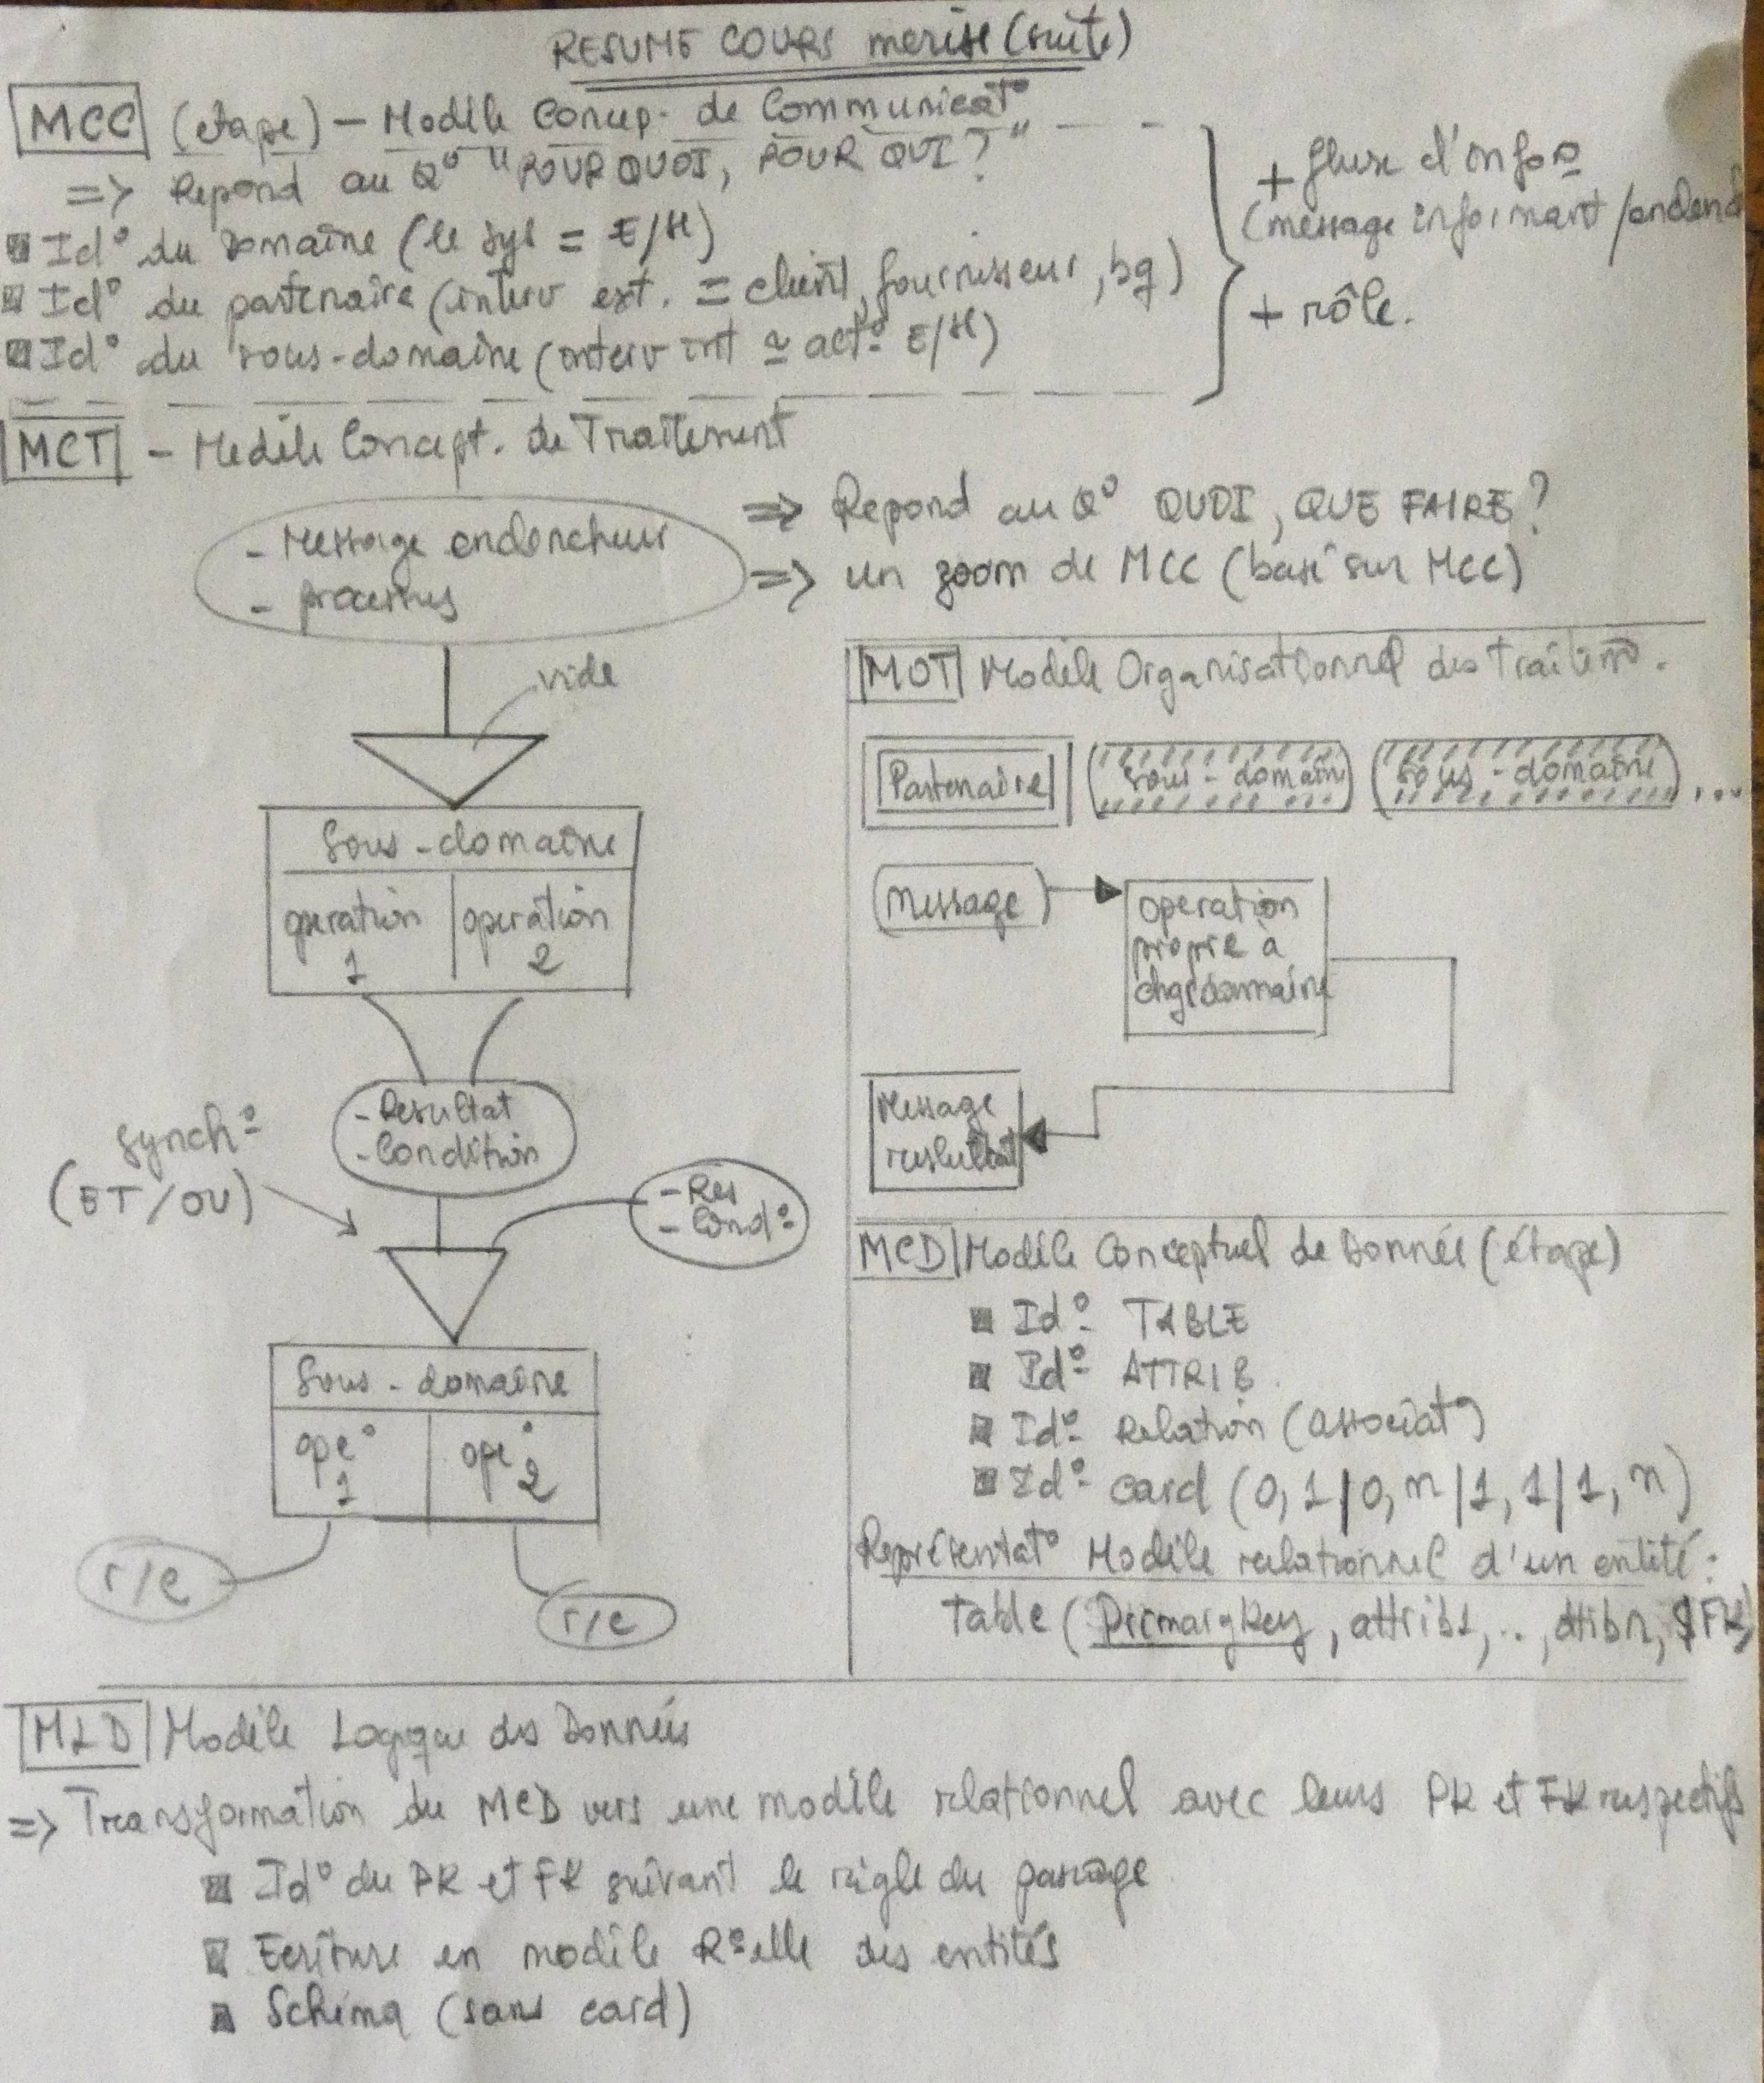 RESUME COURS merise (suite)
MCC (etape) - Modèle Concep. de Communicat°
=> Repond au Q° "POUR QUOI, POUR QUI?"
Id° du Domaine (le sys = E/se)
Id° du partenaire (interv ext. = client, fournisseur, bq)
Id° du sous-domaine (interv int ≃ act° E/se)
+ flux d'info°
(message informant /enclench
+ rôle.
MCT - Modèle Concept. de Traitement
=> Repond au Q° QUOI, QUE FAIRE?
=> un zoom de MCC (basé sur MCC)
- Message enclencheur
- processus
vide
Sous-domaine
operation 1
operation 2
- Resultat
- Condition
Synch°
(ET/OU)
- Res
- Cond°
Sous-domaine
ope° 1
ope° 2
r/c
r/c
MOT Modèle Organisationnel des Traitem°.
Partenaire
sous-domaine
sous-domaine
...
Message
operation
propre à
chq domaine
Message
resultat
MCD Modèle Conceptuel de Donnée (étape)
Id° TABLE
Id° ATTRIB.
Id° Relation (associat°)
Id° card (0,1|0,n|1,1|1,n)
Représentat° Modèle relationnel d'un entité:
Table (Primarykey, attrib1, .., attibn, $FK)
MLD Modèle Logique des Données
=> Transformation du MCD vers une modèle relationnel avec leurs PK et FK respectifs
Id° du PK et FK suivant le règle du passage
Ecriture en modèle R°elle des entités
Schéma (sans card)